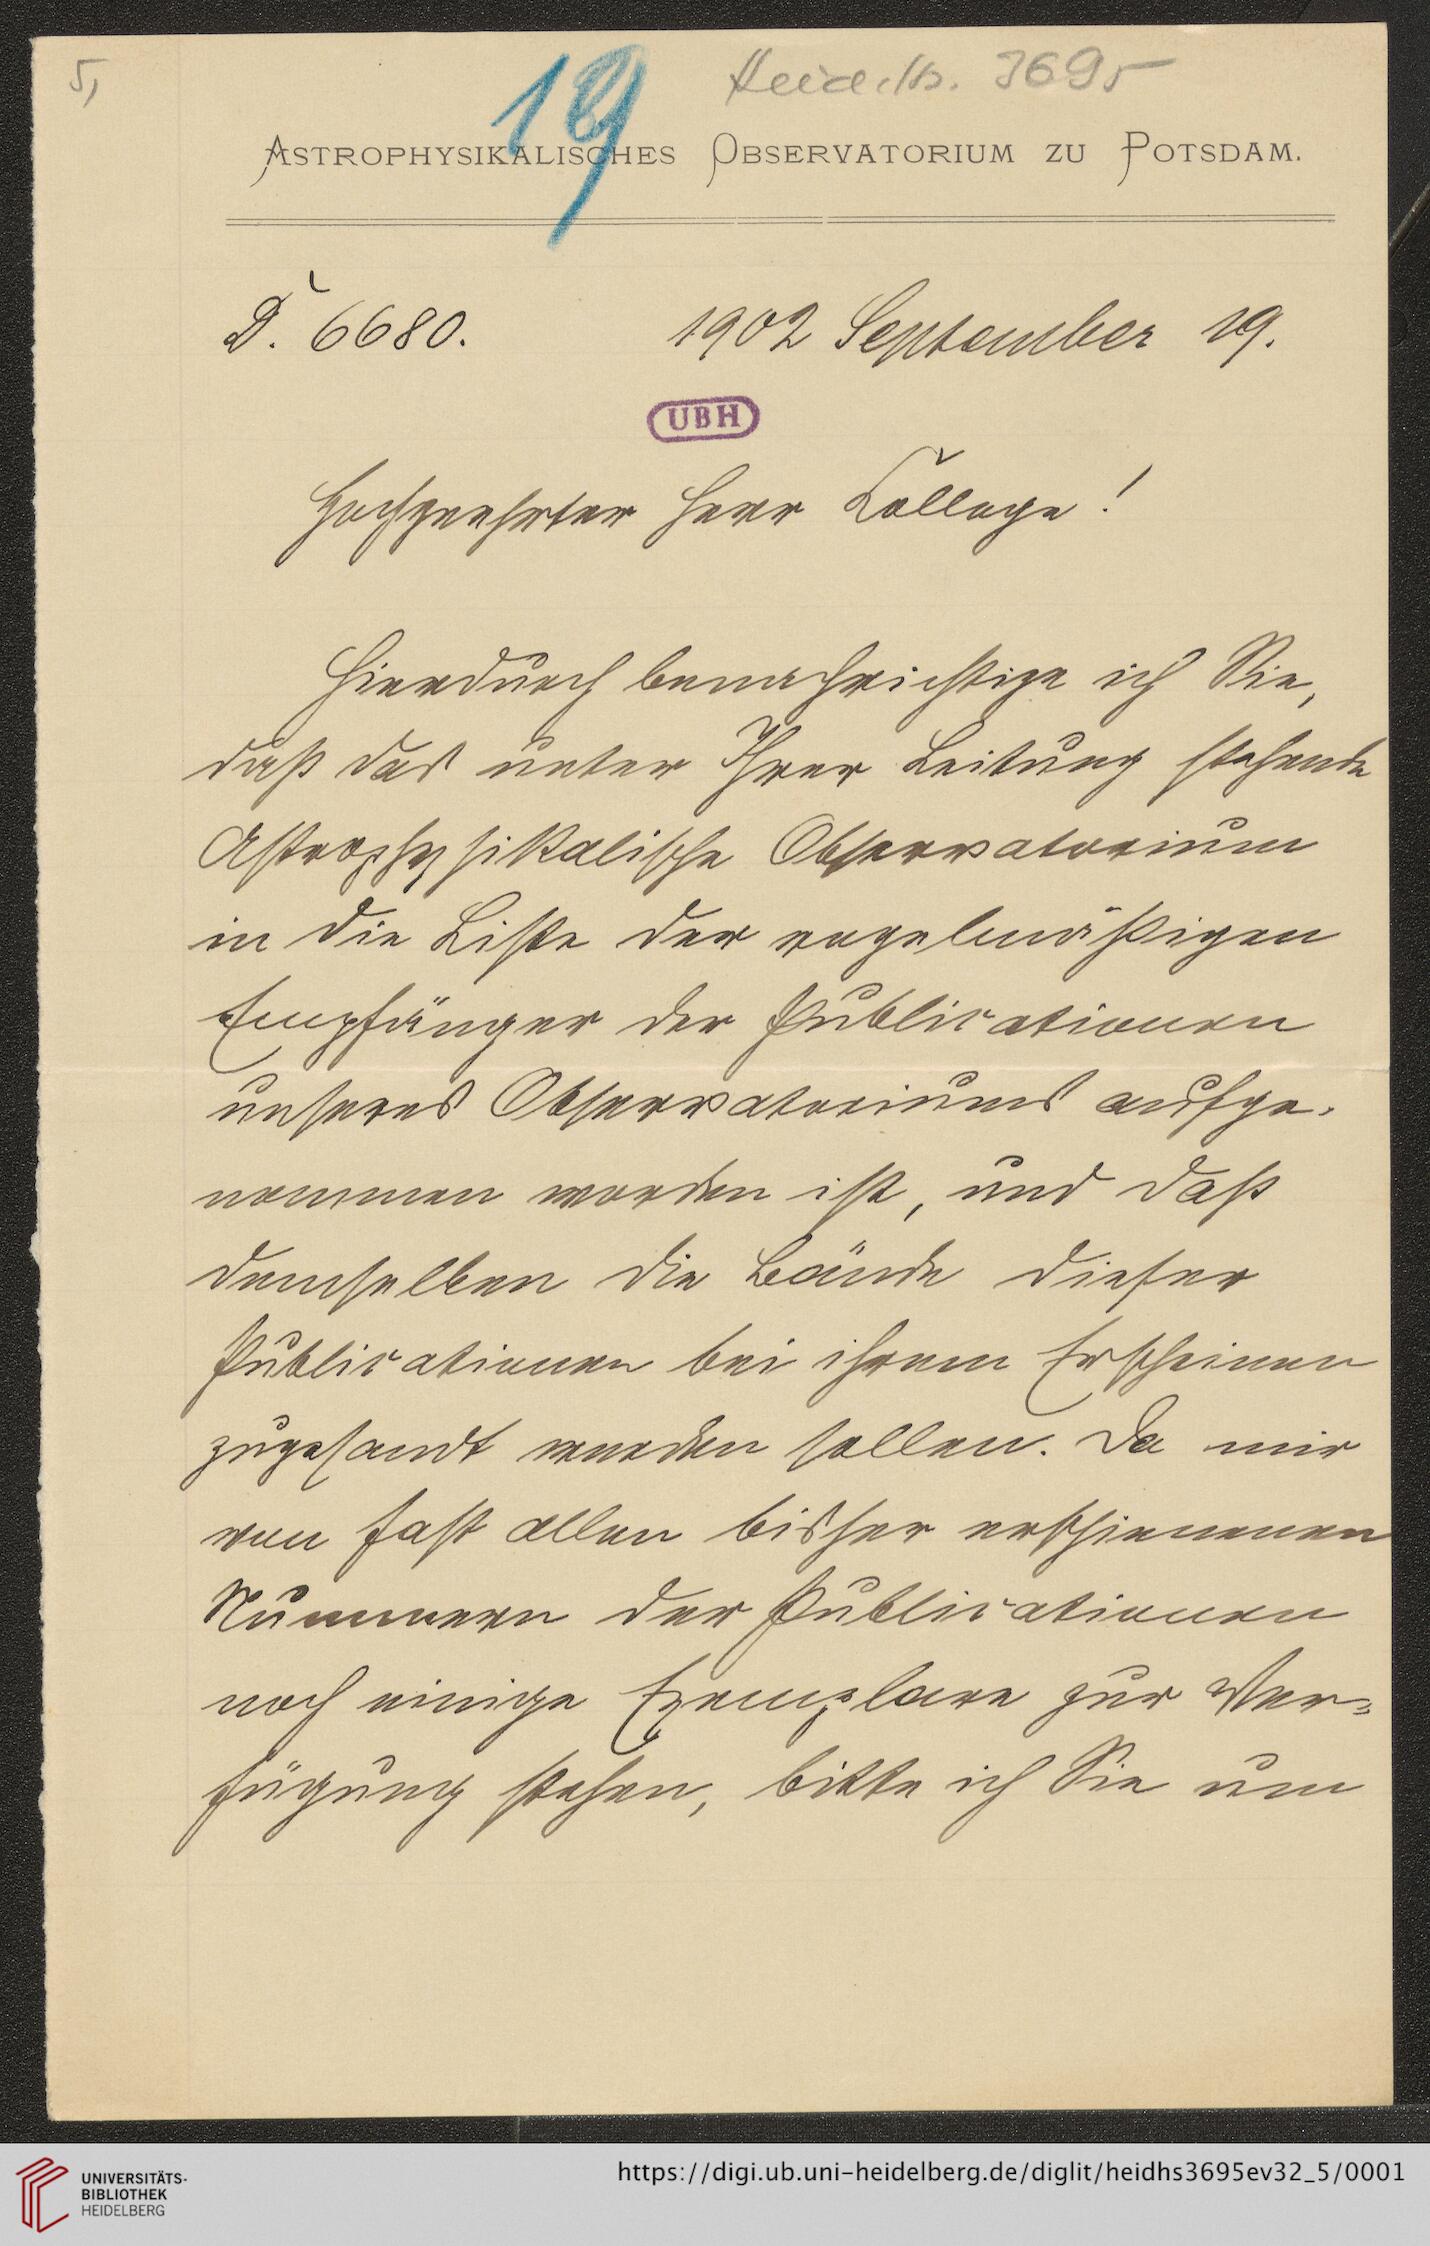 5,
19
Heid. Hs. 3695
ASTROPHYSIKALISCHES OBSERVATORIUM ZU POTSDAM.
D. 6680. 1902 September 19.
UBH
Hochgeehrter Herr College!
Hierdurch benachrichtige ich Sie,
daß das unter Ihrer Leitung stehende
Astrophysikalische Observatorium
in die Liste der regelmäßigen
Empfänger der Publicationen
unseres Observatoriums aufge-
nommen worden ist, und daß
demselben die Bände dieser
Publicationen bei ihrem Erscheinen
zugesandt werden sollen. Da mir
von fast allen bisher erschienenen
Nummern der Publicationen
noch einige Exemplare zur Ver=
fügung stehen, bitte ich Sie um
UNIVERSITÄTS-
BIBLIOTHEK
HEIDELBERG
https://digi.ub.uni-heidelberg.de/diglit/heidhs3695ev32_5/0001